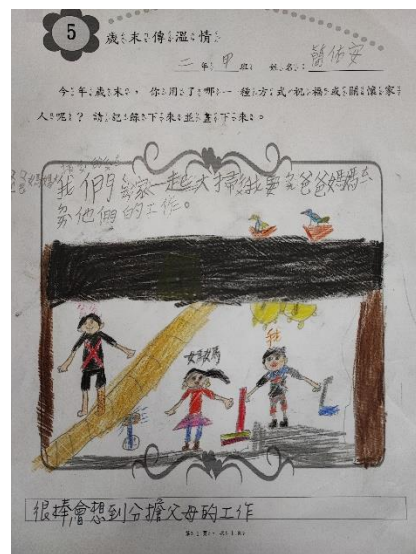 5
歲末傳溫情
二年甲班 姓名：簡佑安
今年歲末，你用了哪一種方式祝福或關懷家
人呢？請記錄下來並畫下來。
我們全家一起大掃
我要和爸爸媽媽
分他們的工作。
媽媽
我
很棒會想到分擔父母的工作